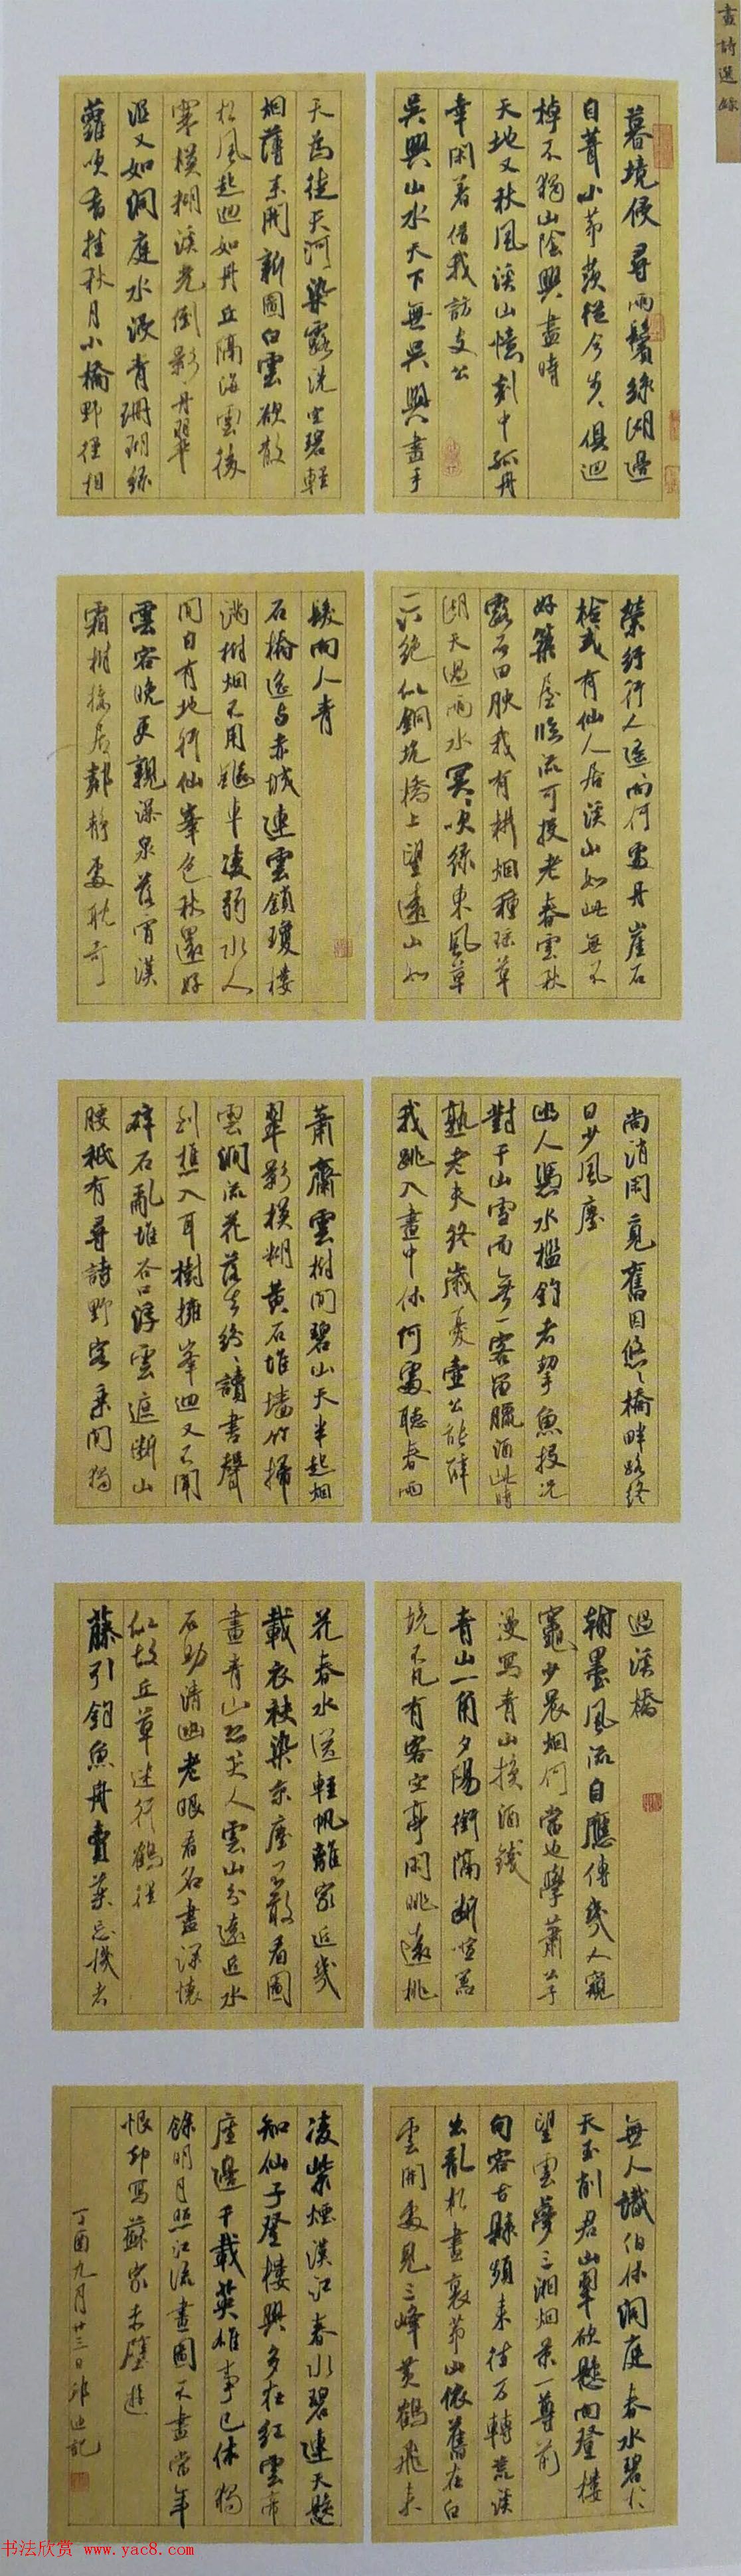 畫詩選錄
暮境侵尋兩鬢絲湖邊
自葺小茅茨從今步步俱迴
棹不獨山陰興盡時
天地又秋風溪山憶剡中孤舟
幸閑著借我訪支公
吳興山水天下無吳興畫手
天爲徒天河染露洗空碧輕
烟薄未開新圖白雲欲散
松風起迴如丹丘隔海雲後
寒模糊溪光倒影丹翠
濕又如洞庭水波青珊瑚綠
蘿吹香挂秋月小橋野徑相
縈紆行人遥向何處丹崖石
棧或有仙人居溪山如此無不
好築屋臨流可投老春雲秋
露石田腴我有耕烟種瑤草
湖天過雨水冥冥吹綠東風草
一汀絕似銅坑橋上望遠山如
髮向人青
石橋遥与赤城連雲鎖瓊樓
滿樹烟不用飈車凌弱水人
間自有地行仙峯色秋還好
雲容晚更親瀑泉落霄漢
霜樹接居鄰静處耽奇
尚消閑覓舊因悠悠橋畔路終
日少風塵
幽人憑水檻釣者挈魚投況
對千山雪而無一客留臘酒此時
熟老夫終歲憂壺公能醉
我跳入畫中休何處聽春雨
蕭齋雲樹間碧山天半起烟
翠影模糊黄石堆墻竹掃
雲澗流花落去紛紛讀書聲
到樵入耳樹擁峯迴又不聞
碎石亂堆谷口浮雲遮斷山
腰祇有尋詩野客乘閑獨
過溪橋
翰墨風流自應傳幾人窺
竈少晨烟何當也學蕭
漫寫青山換酒錢
青山一角夕陽銜隔斷喧
境不凡有客空亭閑眺遠桃
花春水送輕帆離家近幾
載衣袂染京塵不敢看圖
畫青山恐笑人雲山分遠近水
石助清幽老眼看名畫深懷
似故丘草迷行鶴徑
藤引釣魚舟賣藥忘機者
無人識伯休洞庭春水碧於
天玉削君山翠欲懸向登樓
望雲夢三湘烟景一尊前
句容古縣頻来往万轉荒溪
出亂松畫裏茅山依舊在白
雲開處見三峰黄鶴飛来
凌紫煙漢江春水碧連天懸
知仙子登樓興多在紅雲帝
座邊千載英雄事已休獨
餘明月照江流畫圖不盡當年
恨却寫蘇家赤壁遊
丁酉九月廿三日 迪記
书法欣赏 www.yac8.com